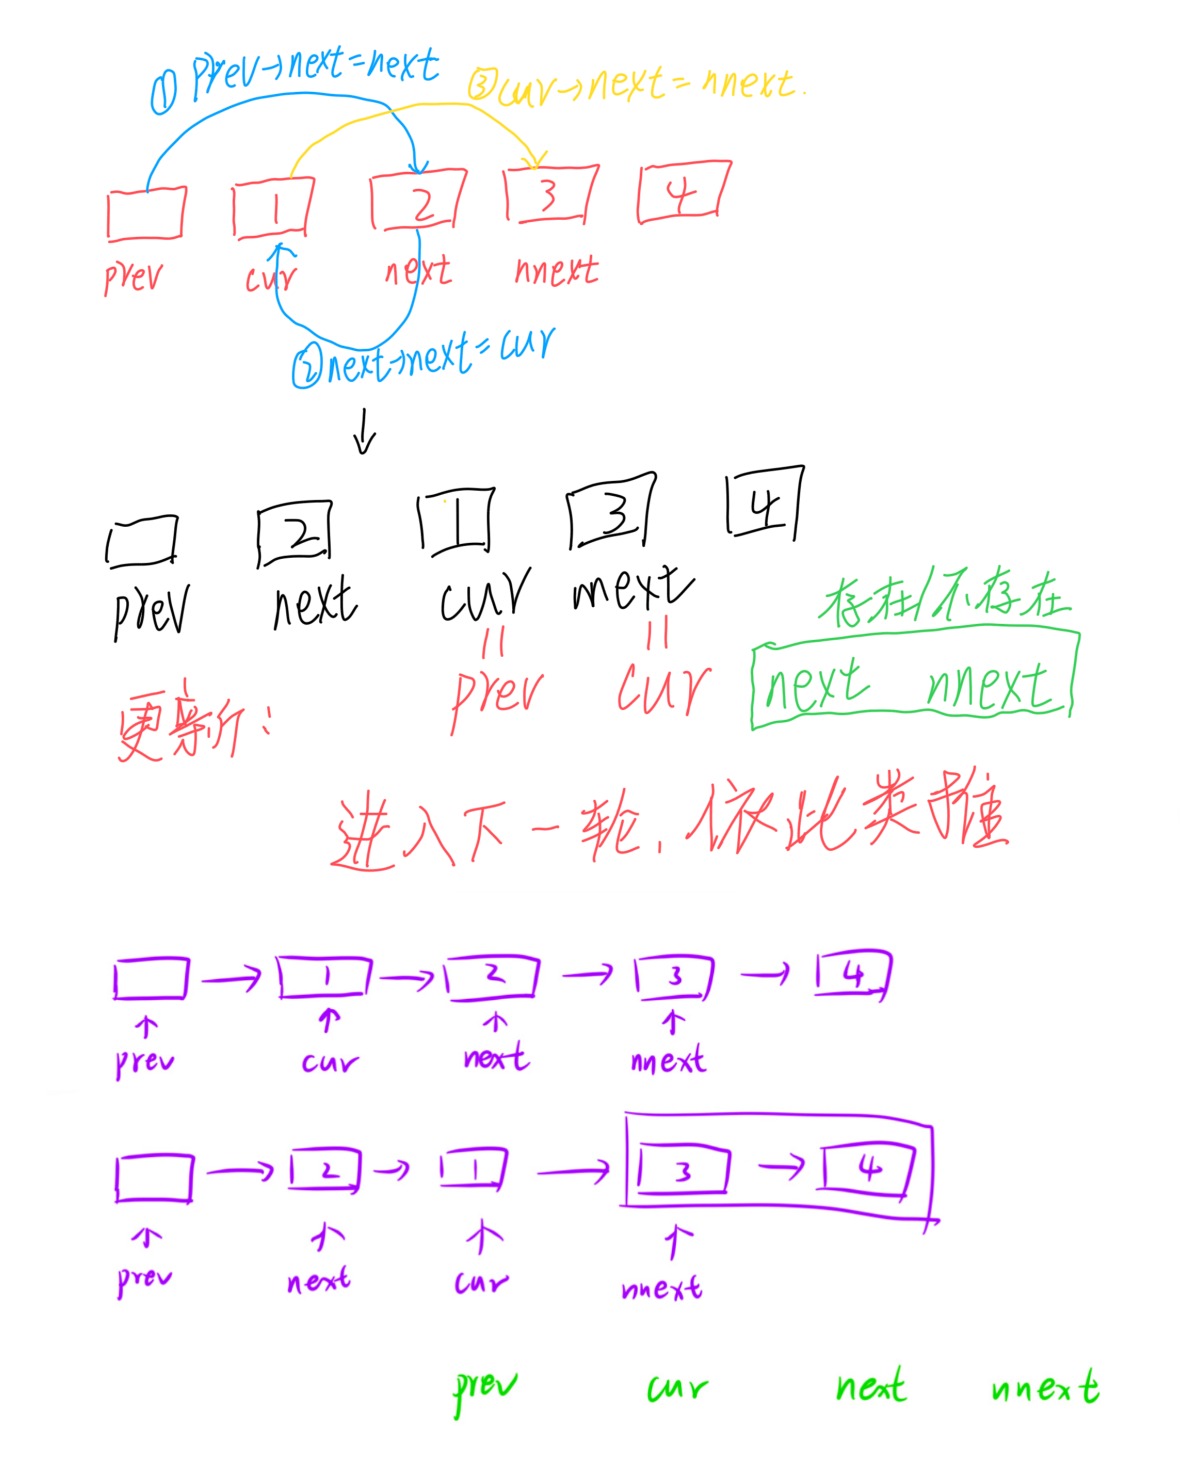 ① prev→next=next
③cur→next=nnext.
1 2 3 4
prev cur next nnext
②next→next=cur
2 1 3 4
prev next cur nnext
存在/不存在
prev cur next nnext
更新:
进入下一轮,依此类推
1 2 3 4
prev cur next nnext
2 1 3 4
prev next cur nnext
prev cur next nnext